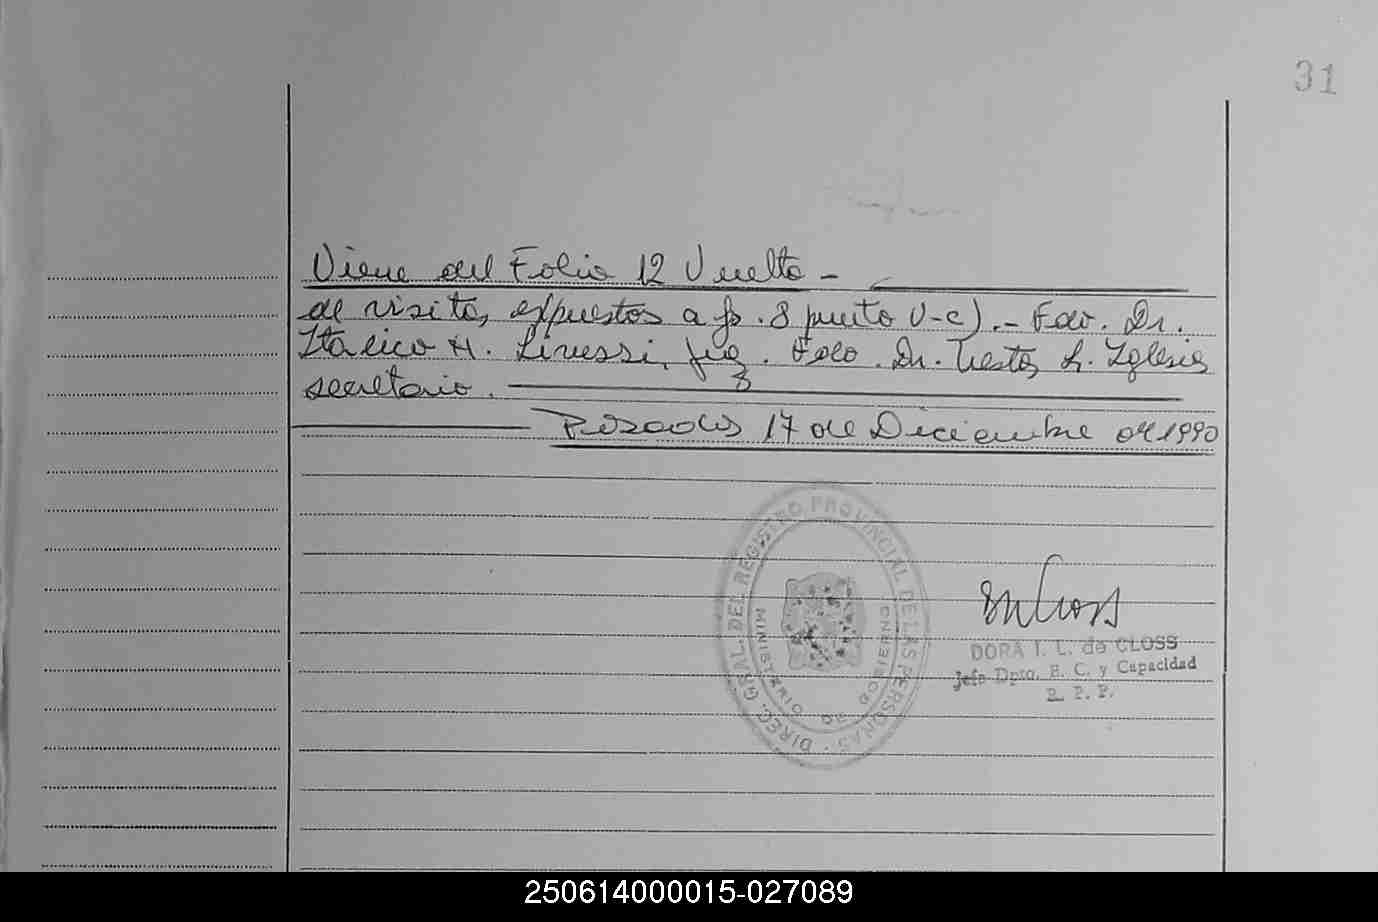 31
Viene del Folio 12 Vuelto -
de visita, expuestos a fs. 8 punto V-c).- Fdo. Dr.
Italico H. Juez. Fdo. Dr. L. Iglesias
secretario.
Posadas 17 de Diciembre de 1990
DIREC. GRAL. DEL REGISTRO PROVINCIAL DE LAS PERSONAS
MINISTERIO DE GOBIERNO
DORA I. L. de CLOSS
Jefa Dpto. E. C. y Capacidad
R. P. P.
250614000015-027089